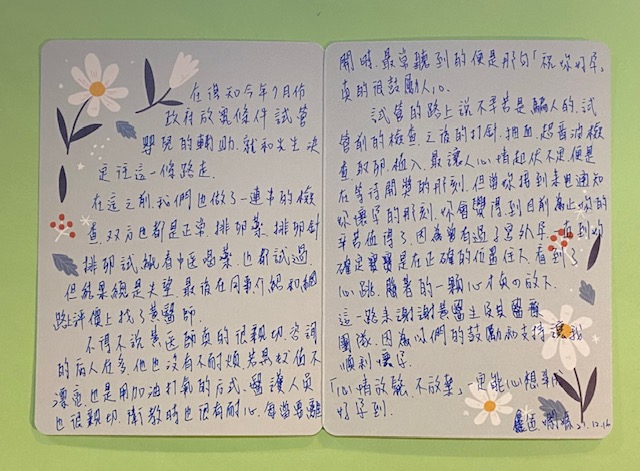 在得知今年7月份
政府放寬條件試管
嬰兒的輔助,就和先生決
定往這一條路走.
在這之前,我們也做了一連串的檢
查.双方也都是正常.排卵藥.排卵針
排卵試紙.看中医喝藥 也都試過.
但結果總是失望.最後在同事介紹和網
路評價上找了黃醫師.
不得不說黃医師真的很親切.咨詢
的病人在多,他也没有不耐煩.若是報值不
漂亮也是用加油打氣的方式.醫護人員
也很親切.衛教時也很有耐心.每當要離
開時.最常聽到的便是那句「祝你好孕」
真的很鼓勵人心.
試管的路上說不辛苦是騙人的.試
管前的檢查.之後的打針.抽血.超音波檢
查.取卵.植入.最讓人心情起伏不定便是
在等待開獎的那刻.但當你接到來电通知
你懷孕的那刻.你會覺得到目前為止你的
辛苦值得了.因為曾有過子宮外孕.直到
確定寶寶是在正確的位置住下.看到了
心跳.隨著的一顆心才真的放下.
這一路來謝謝黃醫生及其醫療
團隊.因為你們的鼓勵和支持讓我
順利懷孕.
「心情放鬆,不放棄」一定能心想事
好孕到.
21.12.16